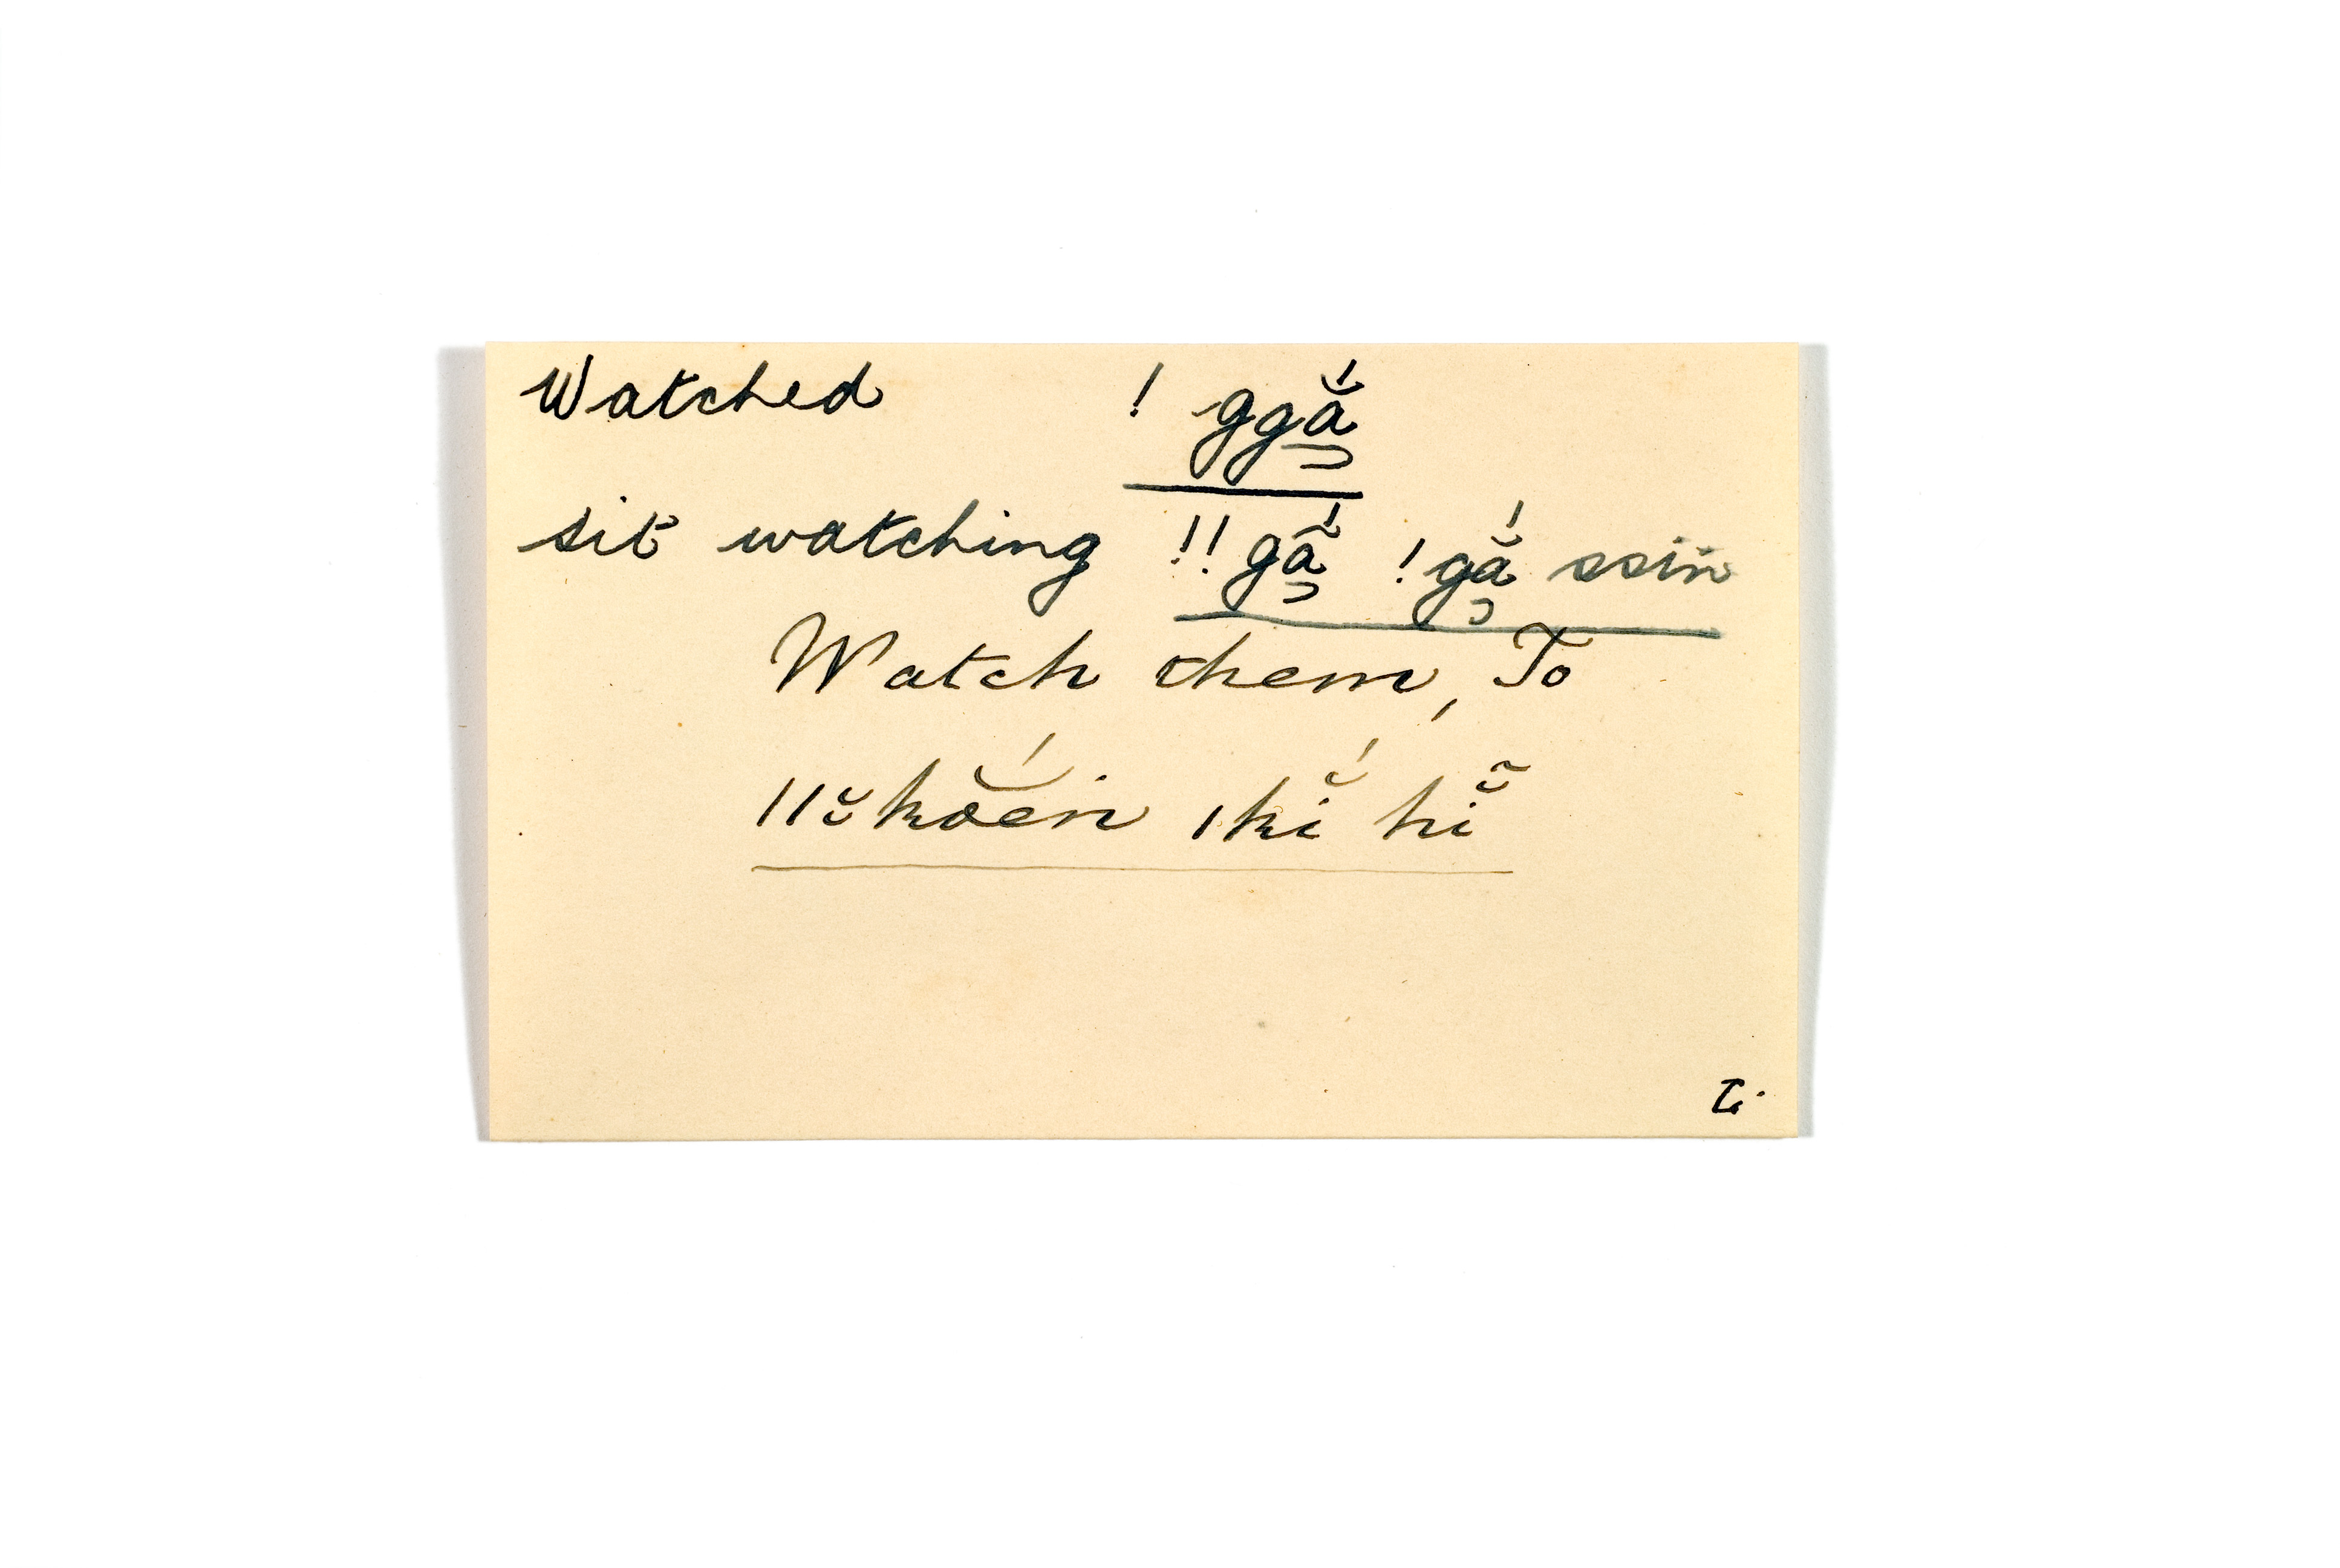 Watched ! ggắ̠
sit watching !!gắ̠ !gắ̠ ssiṅ
Watch them, To
ǀǀʿkŏ́eṅ ǀkĭ́ hĭ̃
L.